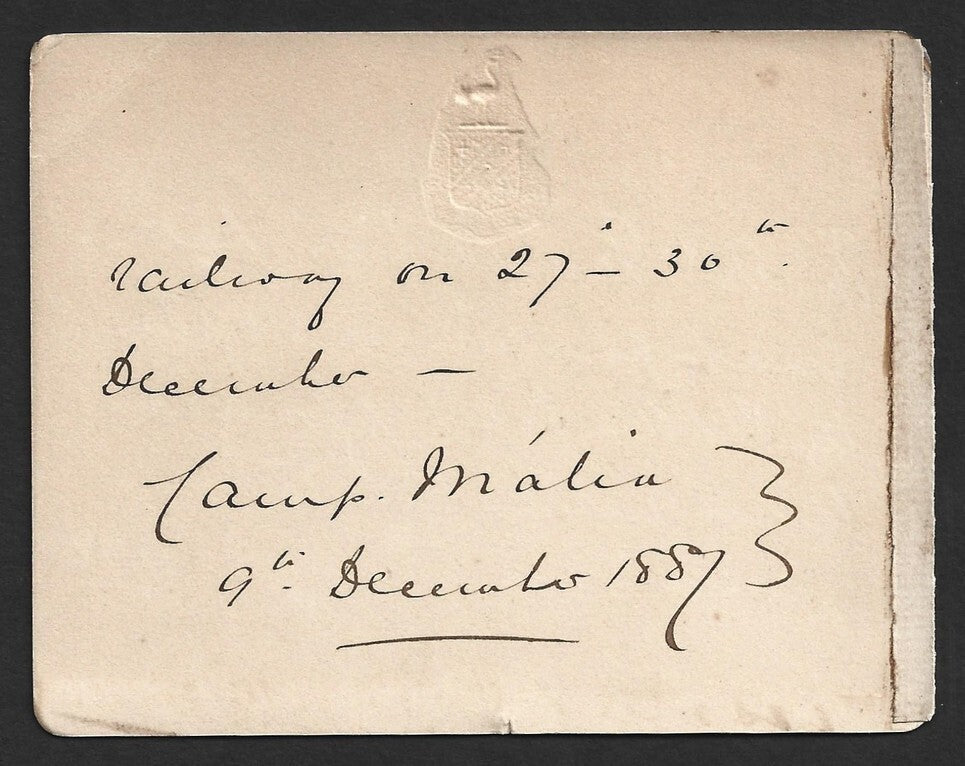 railway on 27 – 30th.
December –
Camp. Mália }
9th. December 1887